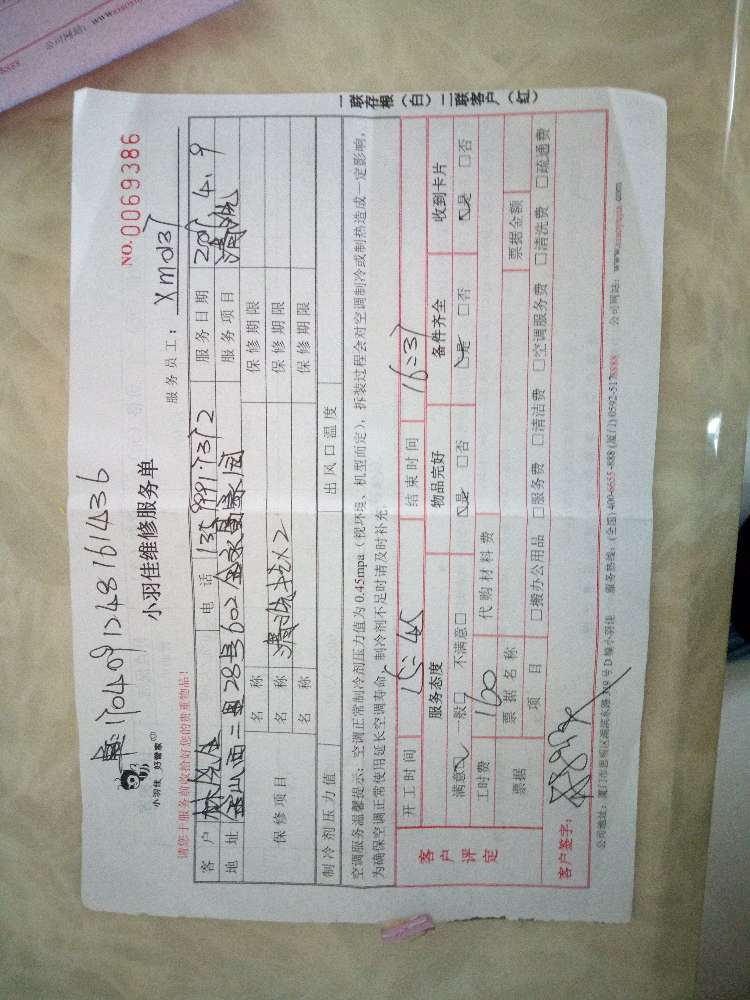 单:1704091248161436
小羽佳 好管家
小羽佳维修服务单
NO.0069386
请您于服务前收拾好您的贵重物品!
服务员工: xmd37
客户 林先生 电话 服务日期 4.9
地址 金山西二里28号602 服务项目 清洗
保修项目 名称 保修期限
名称 清洗挂x2 保修期限
名称 保修期限
制冷剂压力值 出风口温度
空调服务温馨提示:空调正常制冷剂压力值为0.45mpa(视环境、机型而定),拆装过程会对空调制冷或制热造成一定影响,
为确保空调正常使用延长空调寿命,制冷剂不足时请及时补充。
客户评定 开工时间 15:45 结束时间 16:37
服务态度 物品完好 备件齐全 收到卡片
满意☑ 一般□ 不满意□ ☑是 □否 ☑是 □否 ☑是 □否
工时费 160 代购材料费
票据 票据名称 票据金额
项目 □搬办公用品 □服务费 □清洁费 □空调服务费 □清洗费 □疏通费
客户签字:
公司地址:厦门市思明区湖滨东路319号D幢小羽佳 服务热线:(全国)400-6655-888 (厦门)0592-5178888 公司网站:www.xiaoyujia.com
一联存根(白)二联客户(红)
公司网站: